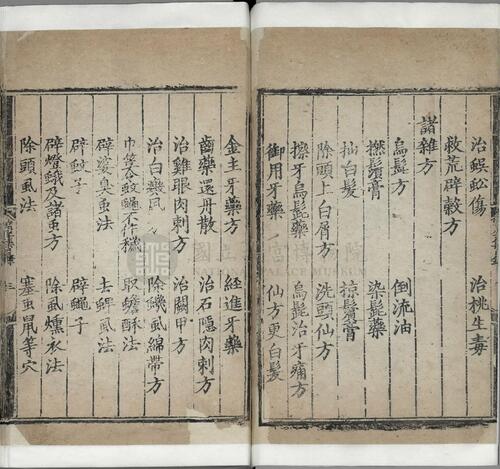 治蜈蚣傷 治桃生毒
救荒辟穀方
諸雜方
烏髭方 倒流油
撚鬚膏 染髭藥
拙白髮 掠鬢膏
除頭上白屑方 洗頭仙方
擦牙烏髭藥 烏髭治牙痛方
御用牙藥 仙方更白髮
金主牙藥方 經進牙藥
齒藥還丹散 治石隱肉刺方
治雞眼肉刺方 治闕甲方
治白癜風 除蟣虱綿帶方
巾篋令蚊蠅不作穢 取蟾酥法
辟婆臭虫法 去蜱風法
辟蚊子 辟蠅子
辟燈蛾及諸虫方 除虱燻衣法
除頭虱法 塞虫鼠等穴
國立
宮博
院